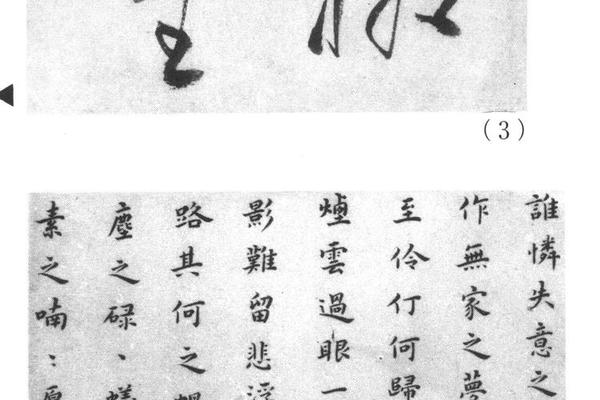 (3)
誰憐失意之
作無家之夢
至伶仃何歸
煙雲過眼一
影難留悲浮
路其何之
塵之碌、
素之喃: